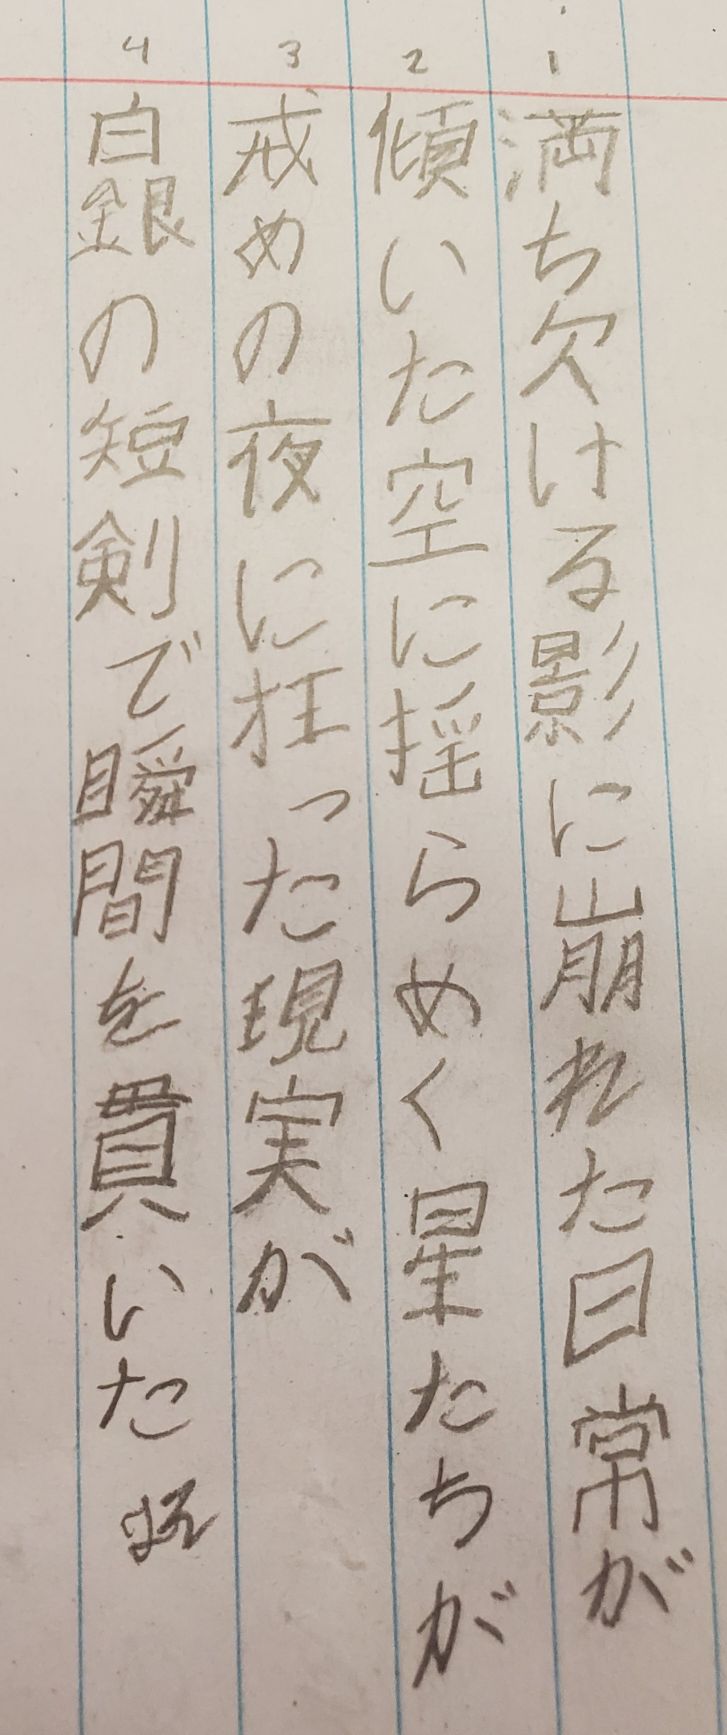 1
満ち欠ける影に崩れた日常が
2
傾いた空に揺らめく星たちが
3
戒めの夜に狂った現実が
4
白銀の短剣で瞬間を貫いた